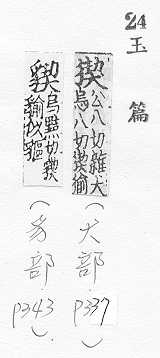 24
玉篇
猰 公八切雜犬
烏八切猰㺄
(犬部 p337)
䝟 烏黠切䝟
貐似貙
(豸部 p343)